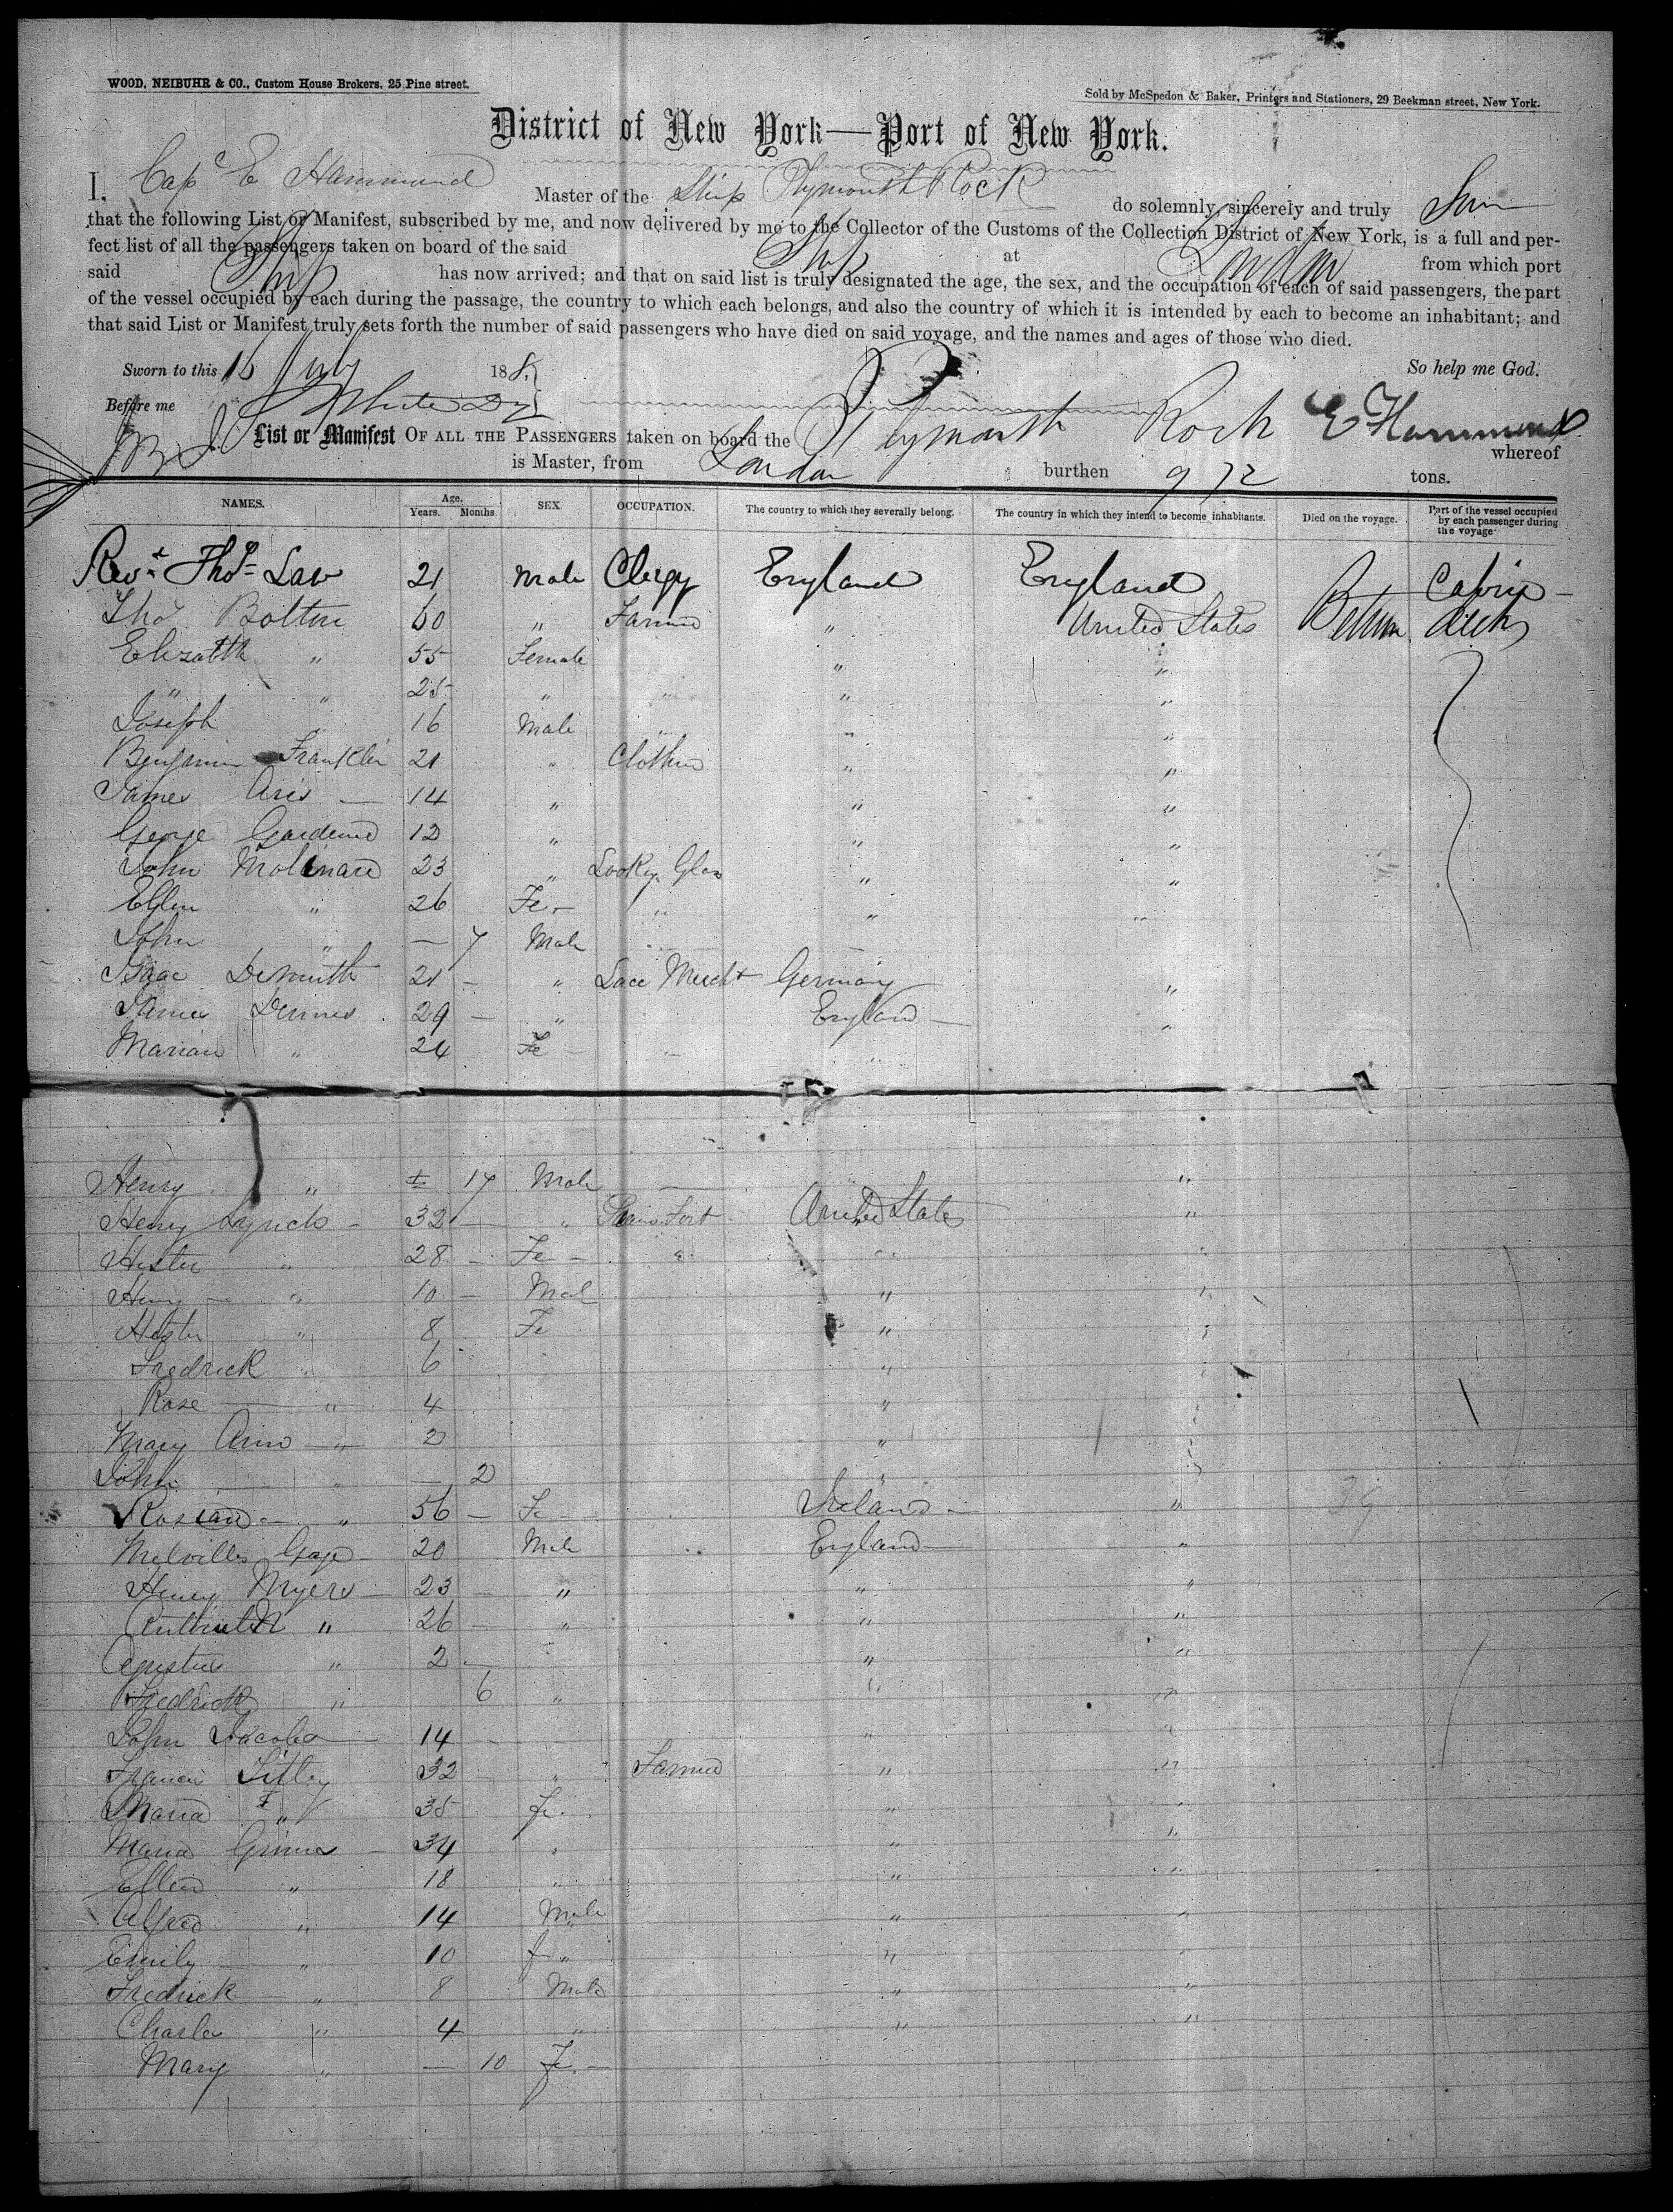 WOOD, NEIBUHR & CO., Custom House Brokers, 25 Pine street.
Sold by McSpedon & Baker, Printers and Stationers, 29 Beekman street, New York.
District of New York—Port of New York.
I, Capt E Hammond Master of the Ship Plymouth Rock do solemnly, sincerely and truly
that the following List or Manifest, subscribed by me, and now delivered by me to the Collector of the Customs of the Collection District of New York, is a full and per-
fect list of all the passengers taken on board of the said Ship at London from which port
said Ship has now arrived; and that on said list is truly designated the age, the sex, and the occupation of each of said passengers, the part
of the vessel occupied by each during the passage, the country to which each belongs, and also the country of which it is intended by each to become an inhabitant; and
that said List or Manifest truly sets forth the number of said passengers who have died on said voyage, and the names and ages of those who died.
Sworn to this 16 July 185 So help me God.
Before me
List or Manifest OF ALL THE PASSENGERS taken on board the Plymouth Rock E Hammond whereof
is Master, from London burthen 972 tons.
NAMES. Age. Years. Months SEX OCCUPATION. The country to which they severally belong. The country in which they intend to become inhabitants. Died on the voyage. Part of the vessel occupied by each passenger during the voyage
Revd Thos Law 21 Male Clergy England England Cabin
Thos Bolton 60 " Farmer " United States Between decks
Elizabeth " 55 Female " "
" " 25 " " " "
Joseph " 16 Male " " "
Benjamin Franklin 21 " Clothier " "
James Aris — 14 " " "
George Gardener 12 " " "
John Molinare 23 " Lookg Glass " "
Ellen " 26 Fe- " " "
John " — 7 Male
Isaac 21 - " Lace Mercht Germany "
James Dennis 29 — " England — "
Marian " 24 Fe - "
Henry " 17 Male "
Henry Lynch - 32 — " United States "
Hester " 28 - Fe - " " "
Henry " 10 - Mal " "
Hester " 8 Fe " "
Fredrick " 6 " "
Rose — " 4 " "
Mary Ann — " 2 " "
John " — 2 " "
" 56 — Fe Ireland — "
Gage 20 Male England — "
Henry Myers 23 - " " "
" 26 — " " "
" 2 — " "
Fredrick " 6 " " "
John Jacobs — 14 " "
Francis 32 " Farmer " "
Maria " 35 fe. " "
Maria Grimes 34 " " "
Ellen " 18 " " "
Alfred " 14 Male " "
Emily " 10 f " " "
Fredrick — " 8 Male " "
Charles " 4 " " "
Mary " — 10 Fe. —
39